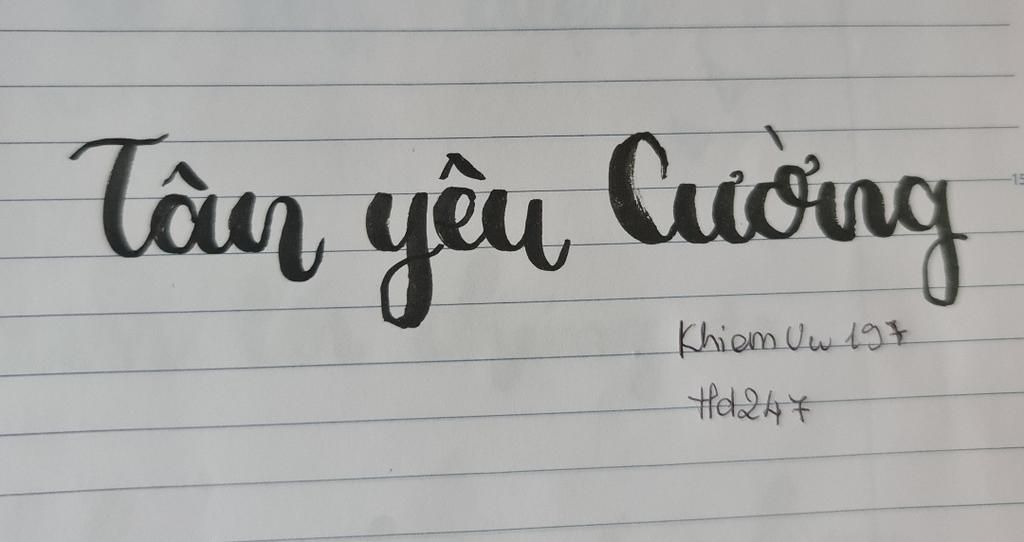 Tâm yêu Cường
KhiemVu197
Hd247